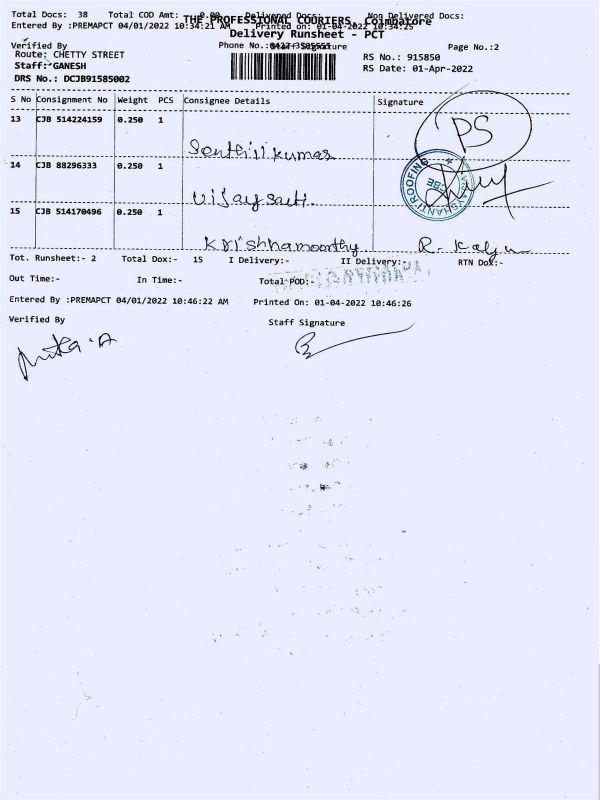 Total Docs: 38 Total COD Amt: 0.00 Delivered Docs: Non Delivered Docs:
THE PROFESSIONAL COURIERS, Coimbatore
Entered By :PREMAPCT 04/01/2022 10:34:21 AM Printed on: 01-04-2022 10:34:25
Delivery Runsheet - PCT
Verified By Phone No.: Signature Page No.:2
Route: CHETTY STREET RS No.: 915850
Staff: GANESH RS Date: 01-Apr-2022
DRS No.: DCJB91585002
S No Consignment No Weight PCS Consignee Details Signature
13 CJB 514224159 0.250 1
Senthil kumar PS
14 CJB 88296333 0.250 1
ROOFING CBE
Vijay
15 CJB 514170496 0.250 1
Krishnamoorthy R.
Tot. Runsheet:- 2 Total Dox:- 15 I Delivery:- II Delivery:- RTN Dox:-
Out Time:- In Time:- Total POD:-
Entered By :PREMAPCT 04/01/2022 10:46:22 AM Printed On: 01-04-2022 10:46:26
Verified By Staff Signature